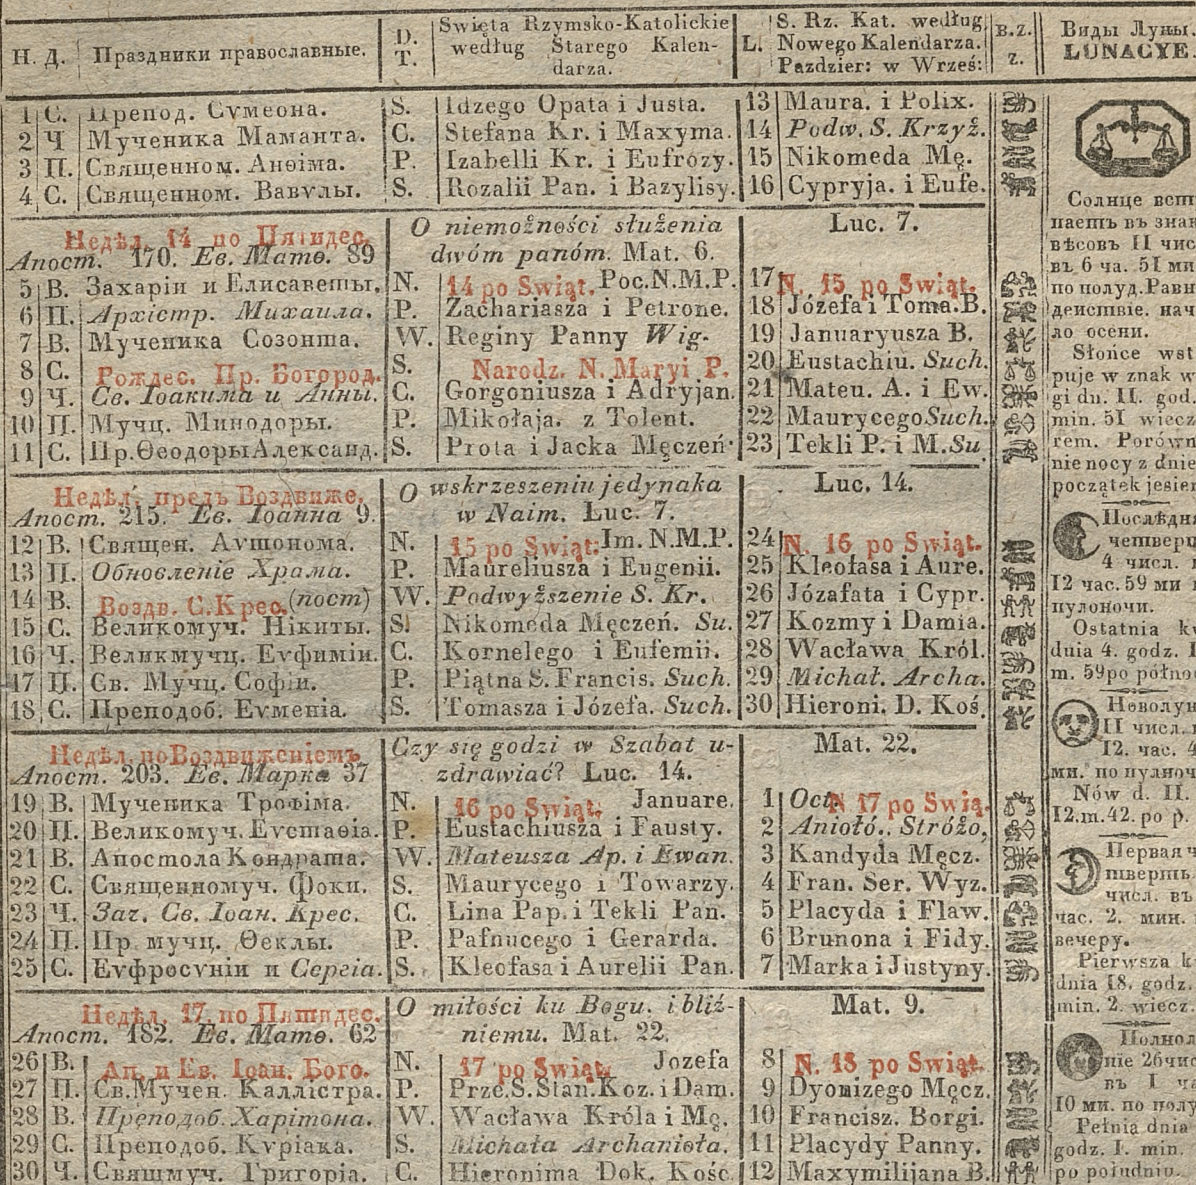 Н. Д. Праздники православные. D. T. Święta Rzymsko-Katolickie według Starego Kalendarza. L. S. Rz. Kat. według Nowego Kalendarza. Pazdzier: w Wrześ: B.Z. z. Виды Луны. LUNACYE.
1 С. Препод. Сѵмеона. S. Idzego Opata i Justa. 13 Maura. i Polix.
2 Ч Мученика Маманта. C. Stefana Kr. i Maxyma. 14 Podw. S. Krzyż.
3 П. Священном. Анѳіма. P. Izabelli Kr. i Eufrozy. 15 Nikomeda Mę.
4 С. Священном. Вавѵлы. S. Rozalii Pan. i Bazylisy. 16 Cypryja. i Eufe.
Недѣл. 14 по Пятидес. O niemożności służenia Luc. 7.
Апост. 170. Ев. Матѳ. 89 dwóm panóm. Mat. 6.
5 В. Захаріи и Елисаветы. N. 14 po Swiąt. Poc.N.M.P. 17 N. 15 po Swiąt.
6 П. Архістр. Михаила. P. Zachariasza i Petrone. 18 Józefa i Toma.B.
7 В. Мученика Созонта. W. Reginy Panny Wig. 19 Januaryusza B.
8 С. Рождес. Пр. Богород. S. Narodz. N. Maryi P. 20 Eustachiu. Such.
9 Ч. Св. Іоакима и Анны. C. Gorgoniusza i Adryjan. 21 Mateu. A. i Ew.
10 П. Мучц. Минодоры. P. Mikołaja. z Tolent. 22 Maurycego Such.
11 С. Пр. Ѳеодоры Александ. S. Prota i Jacka Męczeń. 23 Tekli P. i M. Su.
Недѣл. предъ Воздвиже. O wskrzeszeniu jedynaka Luc. 14.
Апост. 215. Ев. Іоанна 9. w Naim. Luc. 7.
12 В. Священ. Аѵтонома. N. 15 po Swiąt: Im. N.M.P. 24 N. 16 po Swiąt.
13 П. Обновленіе Храма. P. Maureliusza i Eugenii. 25 Kleofasa i Aure.
14 В. Воздв. С. Крес. (пост) W. Podwyższenie S. Kr. 26 Józafata i Cypr.
15 С. Великомуч. Нікиты. S. Nikomeda Męczeń. Su. 27 Kozmy i Damia.
16 Ч. Великмучц. Еѵфиміи. C. Kornelego i Eufemii. 28 Wacława Król.
17 П. Св. Мучц. Софіи. P. Piątna S. Francis. Such. 29 Michał. Archa.
18 С. Преподоб. Еѵменія. S. Tomasza i Józefa. Such. 30 Hieroni. D. Koś.
Недѣл. по Воздвиженіемъ Czy się godzi w Szabat u- Mat. 22.
Апост. 203. Ев. Марка 37 zdrawiać? Luc. 14.
19 В. Мученика Трофіма. N. 16 po Swiąt. Januare. 1 Oct. N 17 po Swią.
20 П. Великомуч. Еѵстаѳіа. P. Eustachiusza i Fausty. 2 Aniołó. Stróżo.
21 В. Апостола Кондрата. W. Mateusza Ap. i Ewan. 3 Kandyda Męcz.
22 С. Священномуч. Фоки. S. Maurycego i Towarzy. 4 Fran. Ser. Wyz.
23 Ч. Зач. Св. Іоан. Крес. C. Lina Pap. i Tekli Pan. 5 Placyda i Flaw.
24 П. Пр. мучц. Ѳеклы. P. Pafnucego i Gerarda. 6 Brunona i Fidy.
25 С. Еѵфросѵніи и Сергіа. S. Kleofasa i Aurelii Pan. 7 Marka i Justyny.
Недѣл. 17. по Пятидес. O miłości ku Bogu. i bliź- Mat. 9.
Апост. 182. Ев. Матѳ. 62 niemu. Mat. 22.
26 В. Ап. и Ев. Іоан. Бого. N. 17 po Swiąt. Jozefa 8 N. 18 po Swiąt.
27 П. Св. Мучен. Каллістра. P. Prze.S.Stan.Koz. i Dam. 9 Dyonizego Męcz.
28 В. Преподоб. Харітона. W. Wacława Króla i Mę. 10 Francisz. Borgi.
29 С. Преподоб. Кѵріака. S. Michała Archanioła. 11 Placydy Panny.
30 Ч. Свящмуч. Григоріа. C. Hieronima Dok. Kośc. 12 Maxymilijana B.
Солнце всту
паетъ въ знак
вѣсовъ II чис
въ 6 ча. 51 ми
по полуд. Равн
денствіе. нач
ло осени.
Słońce wst
puje w znak w
gi dn. II. god.
min. 51 wiecz
rem. Porówn
nie nocy z dnie
początek jesien
Послѣдня
четверт
4 числ.
12 час. 59 ми
пулоночи.
Ostatnia kw
dnia 4. godz. I
m. 59 po północ
Новолун
II числ.
12. час. 4
ми. по пулноч
Nów d. II.
12.m.42. po p.
Первая ч
тверть.
числ. въ
час. 2. мин.
вечеру.
Pierwsza kw
dnia 18. godz.
min. 2. wiecz.
Полнол
ніе 26 чис
въ I ча
10 ми. по полу
Pełnia dnia
godz. I. min.
po południu.